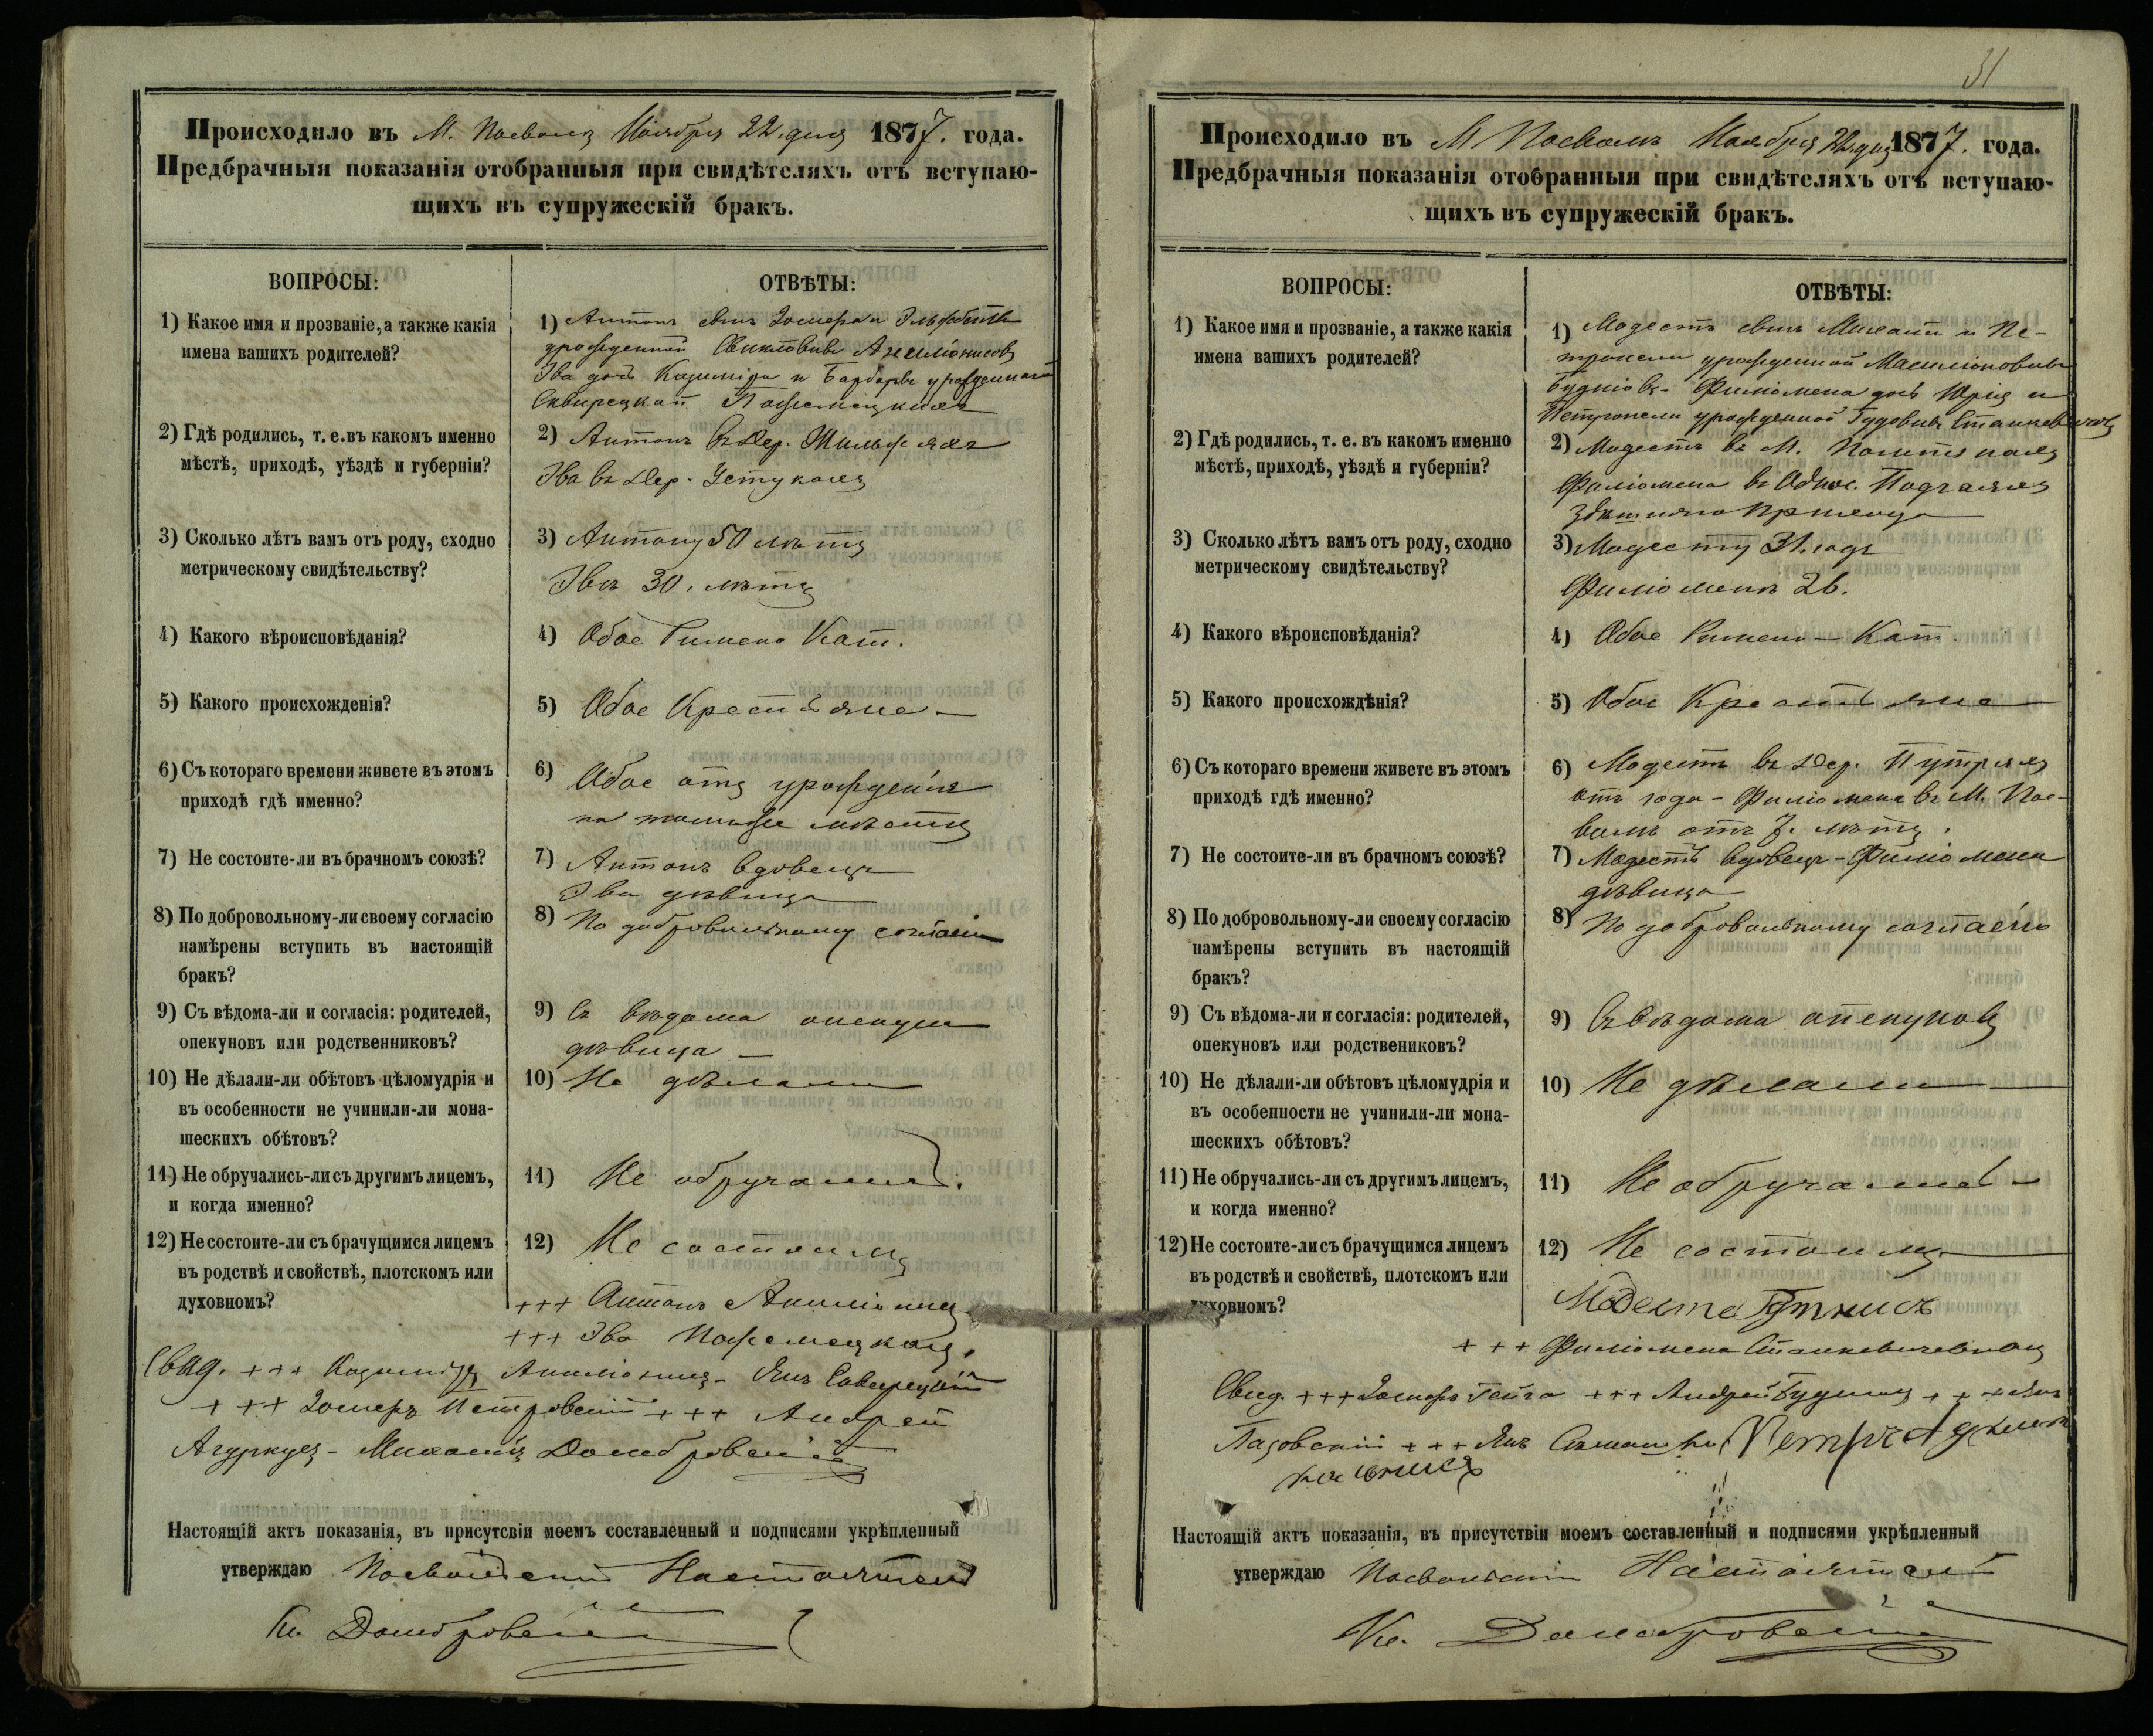 Происходило въ М. Посволъ Ноября 22. дня 1877. года.
Предбрачныя показанія отобранныя при свидѣтеляхъ отъ вступаю-
щихъ въ супружескій бракъ.
ВОПРОСЫ:
ОТВѢТЫ:
1) Какое имя и прозваніе, а также какія
имена вашихъ родителей?
1) Антонъ сынъ
урожденной
Ева дочь Казиміра и Барбары урожденной
2) Гдѣ родились, т. е. въ какомъ именно
мѣстѣ, приходѣ, уѣздѣ и губерніи?
2) Антонъ въ Дер.
Эва въ Дер.
3) Сколько лѣтъ вамъ отъ роду, сходно
метрическому свидѣтельству?
3) Антону 50 лѣтъ
Эвѣ 30. лѣтъ
4) Какого вѣроисповѣданія?
4) Обое Римско Кат.
5) Какого происхожденія?
5) Обое Крестьяне —
6) Съ котораго времени живете въ этомъ
приходѣ гдѣ именно?
6) Обое отъ урожденія
на томъ же мѣстѣ
7) Не состоите-ли въ брачномъ союзѣ?
7) Антонъ вдовецъ
Эва дѣвица
8) По добровольному-ли своему согласію
намѣрены вступить въ настоящій
бракъ?
8) По добровольному согласію
9) Съ вѣдома-ли и согласія: родителей,
опекуновъ или родственниковъ?
9) Съ вѣдома
дѣвица —
10) Не дѣлали-ли обѣтовъ цѣломудрія и
въ особенности не учинили-ли мона-
шескихъ обѣтовъ?
10) Не дѣлали
11) Не обручались-ли съ другимъ лицемъ,
и когда именно?
11) Не обручались.
12) Не состоите-ли съ брачущимся лицемъ
въ родствѣ и свойствѣ, плотскомъ или
духовномъ?
12) Не состоимъ
+++ Антонъ
+++ Эва
Свид. +++ Казиміръ Янъ
+++ Петровскій +++ Андрей
Михаилъ Домбровскій
Настоящій актъ показанія, въ присутсвіи моемъ составленный и подписями укрѣпленный
утверждаю Посвольскій Настоятель
Кс. Домбровскій
31
Происходило въ М. Посволъ Ноября 22. дня 1877. года.
Предбрачныя показанія отобранныя при свидѣтеляхъ отъ вступаю-
щихъ въ супружескій бракъ.
ВОПРОСЫ:
ОТВѢТЫ:
1) Какое имя и прозваніе, а также какія
имена вашихъ родителей?
1) Модестъ сынъ Михаила и Пе-
тронели урожденной
Филіомена дочь Юрія и
Петронели урожденной
2) Гдѣ родились, т. е. въ какомъ именно
мѣстѣ, приходѣ, уѣздѣ и губерніи?
2) Модестъ въ М.
Филіомена въ
здѣшняго прихода
3) Сколько лѣтъ вамъ отъ роду, сходно
метрическому свидѣтельству?
3) Модесту 31. годъ
Филіоменѣ 26.
4) Какого вѣроисповѣданія?
4) Обое Римско — Кат.
5) Какого происхождѣнія?
5) Обое Крестьяне
6) Съ котораго времени живете въ этомъ
приходѣ гдѣ именно?
6) Модестъ въ Дер.
отъ года — Филіомена въ М. Пос-
волъ отъ 7. лѣтъ.
7) Не состоите-ли въ брачномъ союзѣ?
7) Модестъ вдовецъ — Филіомена
дѣвица
8) По добровольному-ли своему согласію
намѣрены вступить въ настоящій
бракъ?
8) По добровольному согласію
9) Съ вѣдома-ли и согласія: родителей,
опекуновъ или родствениковъ?
9) Съ вѣдома опекуновъ
10) Не дѣлали-ли обѣтовъ цѣломудрія и
въ особенности не учинили-ли мона-
шескихъ обѣтовъ?
10) Не дѣлали —
11) Не обручались-ли съ другимъ лицемъ,
и когда именно?
11) Не обручались —
12) Не состоите-ли съ брачущимся лицемъ
въ родствѣ и свойствѣ, плотскомъ или
духовномъ?
12) Не состоимъ
+++ Филіомена Станкевичевна
Свид. +++ +++ Андрей +++ Янъ
+++ Янъ Петръ
Настоящій актъ показанія, въ присутствіи моемъ составленный и подписями укрѣпленный
утверждаю Посвольскій Настоятель
Кс. Домбровскій